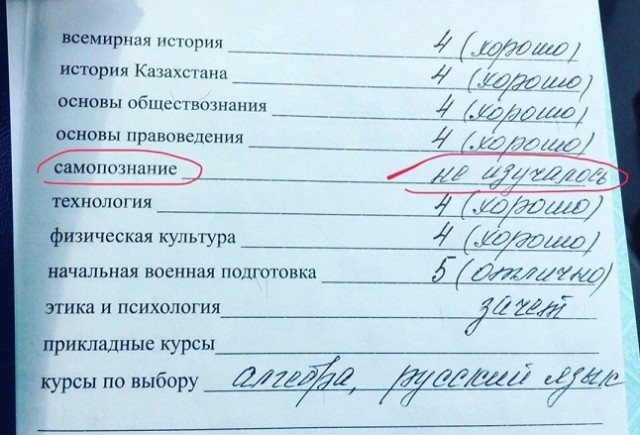 всемирная история 4 (хорошо)
история Казахстана 4 (хорошо)
основы обществознания 4 (хорошо)
основы правоведения 4 (хорошо)
самопознание не изучалось
технология 4 (хорошо)
физическая культура 4 (хорошо)
начальная военная подготовка 5 (отлично)
этика и психология зачет
прикладные курсы
курсы по выбору алгебра, русский язык